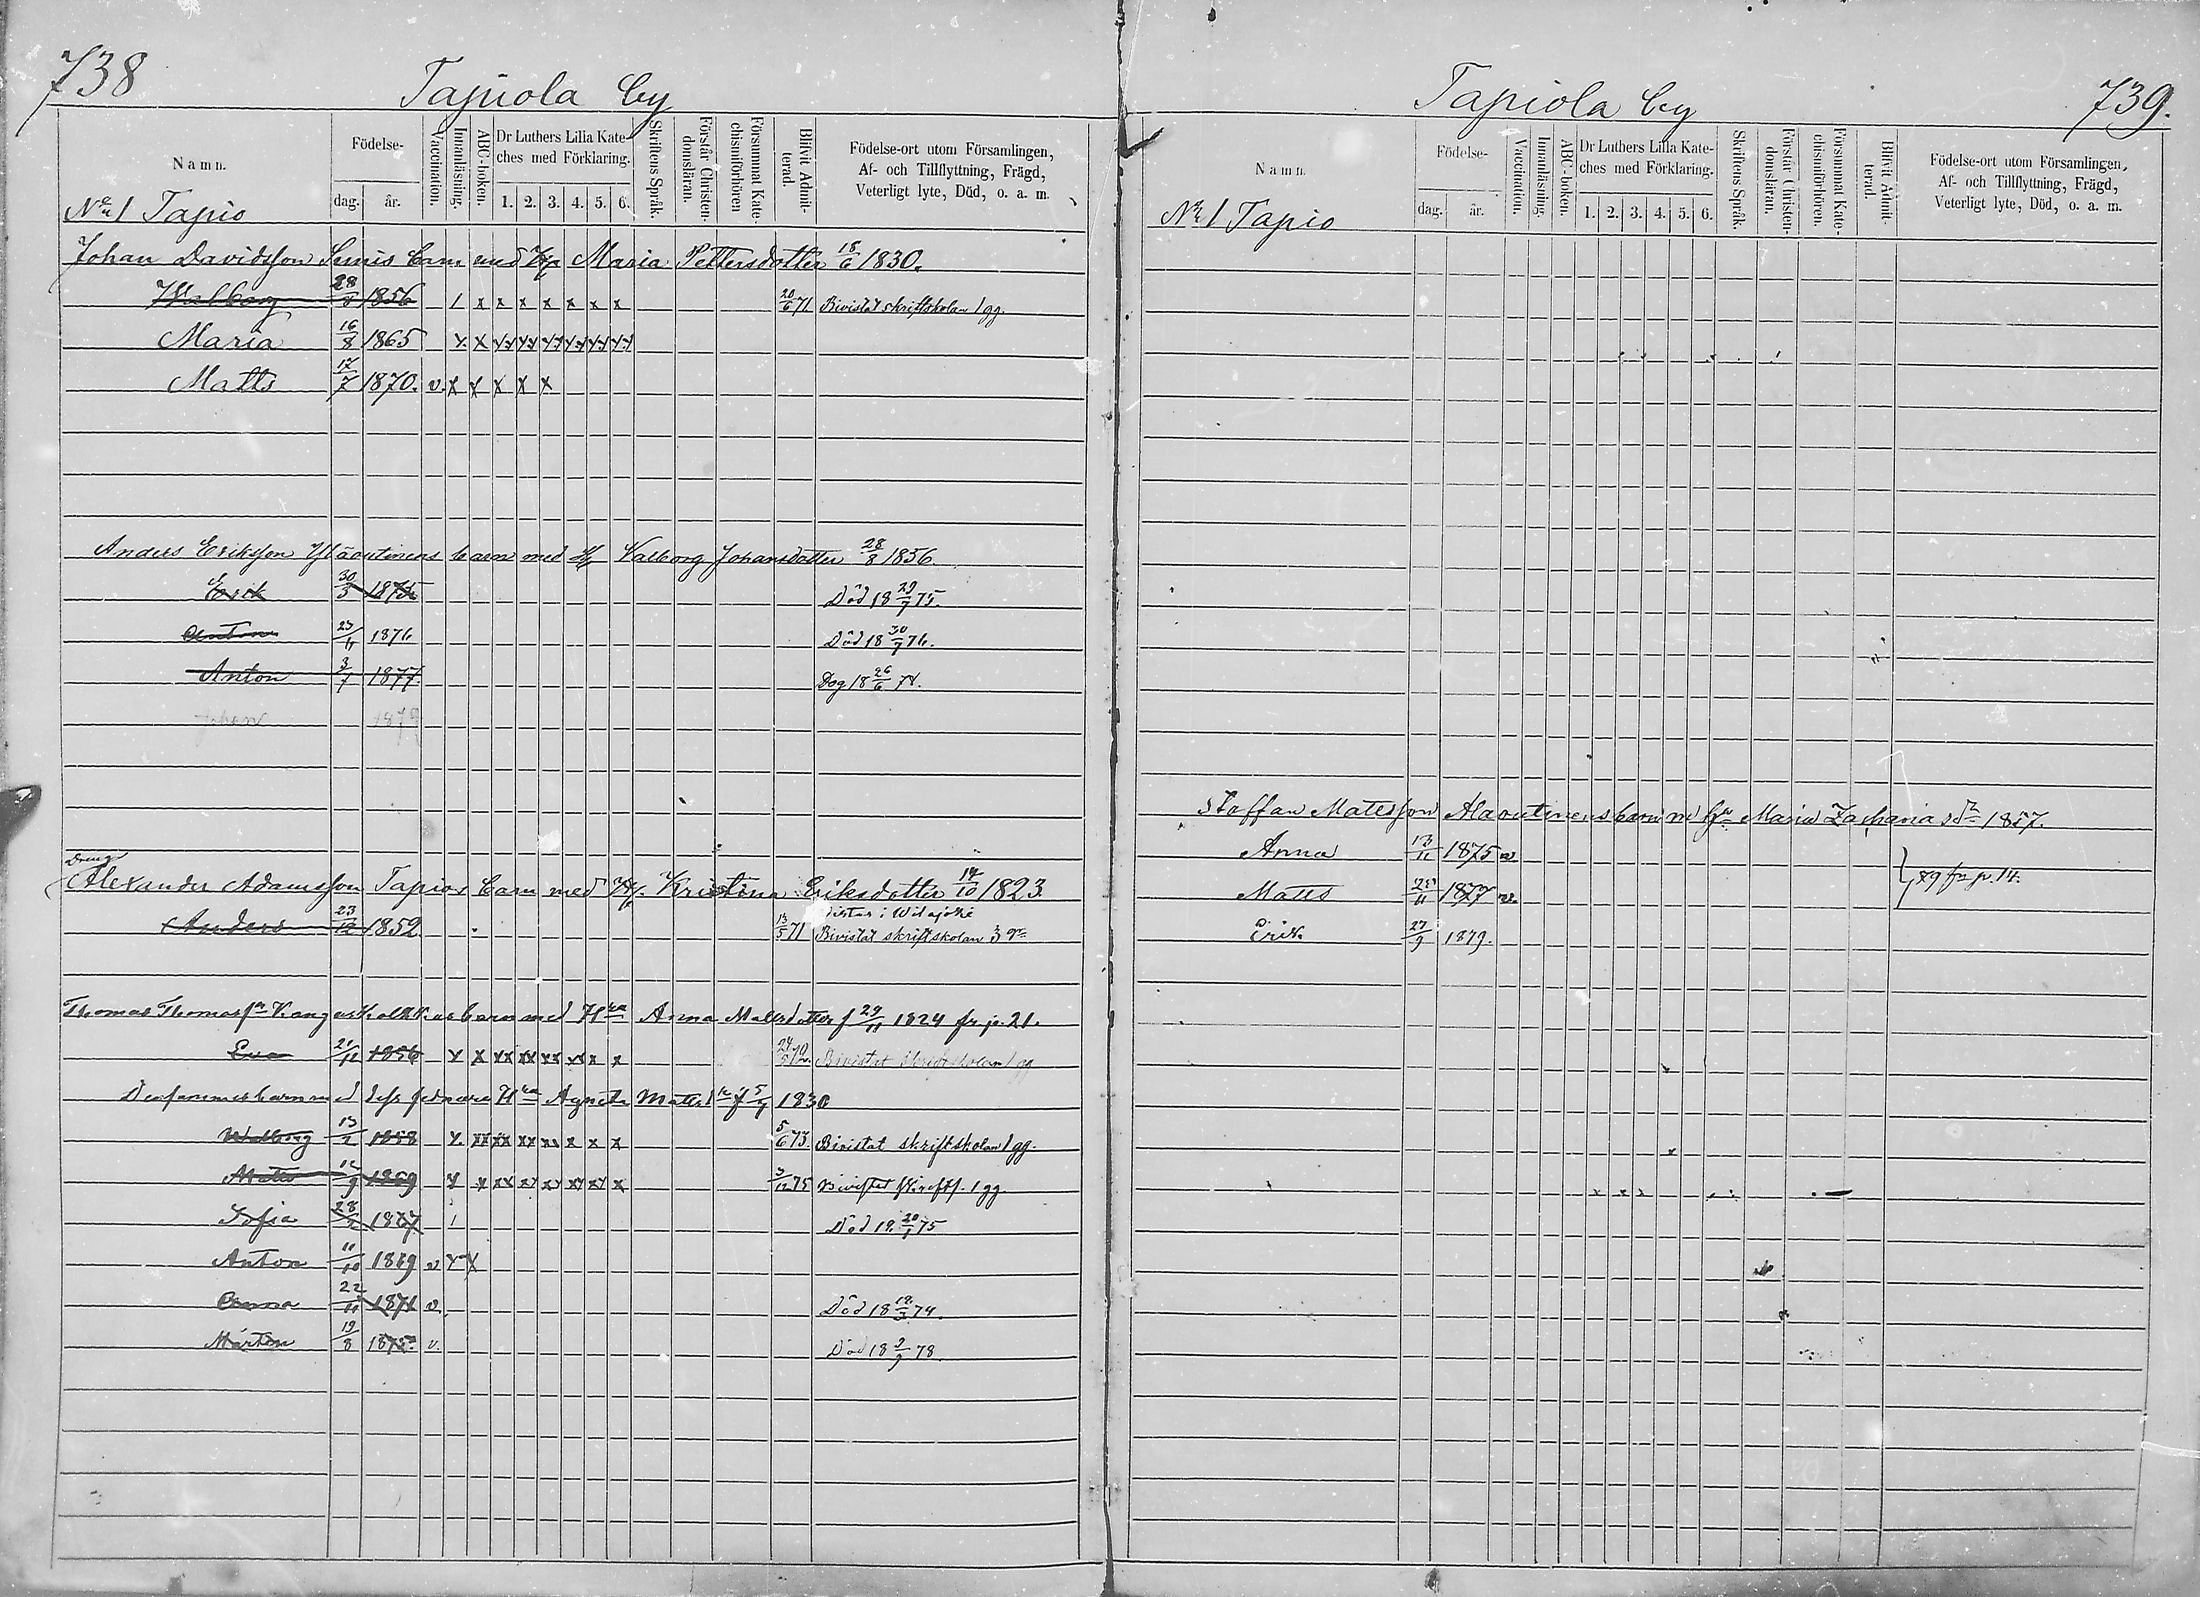 738
Tapiola by
Namn.
Födelse-
dag.
år.
Vaccination.
Innanläsning.
ABC-boken.
Dr Luthers Lilla Kate-
ches med Förklaring.
1. 2. 3. 4. 5. 6.
Skriftens Språk.
Förstår Christen-
domsläran.
Försummat Kate-
chismiförhören
Blifvit Admit-
terad.
Födelse-ort utom Församlingen,
Af- och Tillflyttning, Frägd,
Veterligt lyte, Död, o. a. m.
No 1 Tapio
Johan Davidsson barn med Maria Pettersdotter 18/6 1830.
Walborg 28/8 1856 / x x x x x x x 20/6 71. Bivistat skriftskolan 1 gg.
Maria 16/8 1865
Matts 17/7 1870. v. x x x x x
Anders Eriksson barn med H Valborg Johansdotter 28/8 1856
Erik 30/3 1875 Död 18 29/7 75.
Anton 23/6 1876 Död 18 30/7 76.
Anton 3/7 1877. Dog 18 26/6 78.
Johan 1879
Dreng
Alexander Adamsson Tapios barn med H. Kristina Eriksdotter 14/10 1823.
Anders 23/12 1852. 13/5 71 Bivistat skriftskolan 3 gr
Thomas Thomasson barn med Anna Mattsdotter f 29/11 1824 fr p. 21.
Eva 21/12 1856 Bivistat skriftskolan 1 gg
barn med dess sednare H Agneta Matsd f 5/7 1830
Walborg 13/2 1858 5/6 73. Bivistat skriftskolan 1 gg.
Matts 12/9 1859 3/12 75 Bivistat skriftsk. 1 gg
Sofia 28/2 1867 Död 18 20/1 75
Anton 11/10 1869 v
Anna 22/11 1871 v. Död 18 19/3 74.
Mårten 19/8 1875 v. Död 18 2/9 78.
Tapiola by
739.
Namn.
Födelse-
dag.
år.
Vaccination.
Innanläsning.
ABC-boken.
Dr Luthers Lilla Kate-
ches med Förklaring.
1. 2. 3. 4. 5. 6.
Skriftens Språk.
Förstår Christen-
domsläran.
Försummat Kate-
chismiförhören.
Blifvit Admit-
terad.
Födelse-ort utom Församlingen,
Af- och Tillflyttning, Frägd,
Veterligt lyte, Död, o. a. m.
No 1 Tapio
Staffan Matsson Alaoutinens barn m Maria Zachariasdr 1857.
Anna 13/11 1875 v
79 fr p. 14.
Matts 25/11 1877 v.
Erik 27/9 1879.